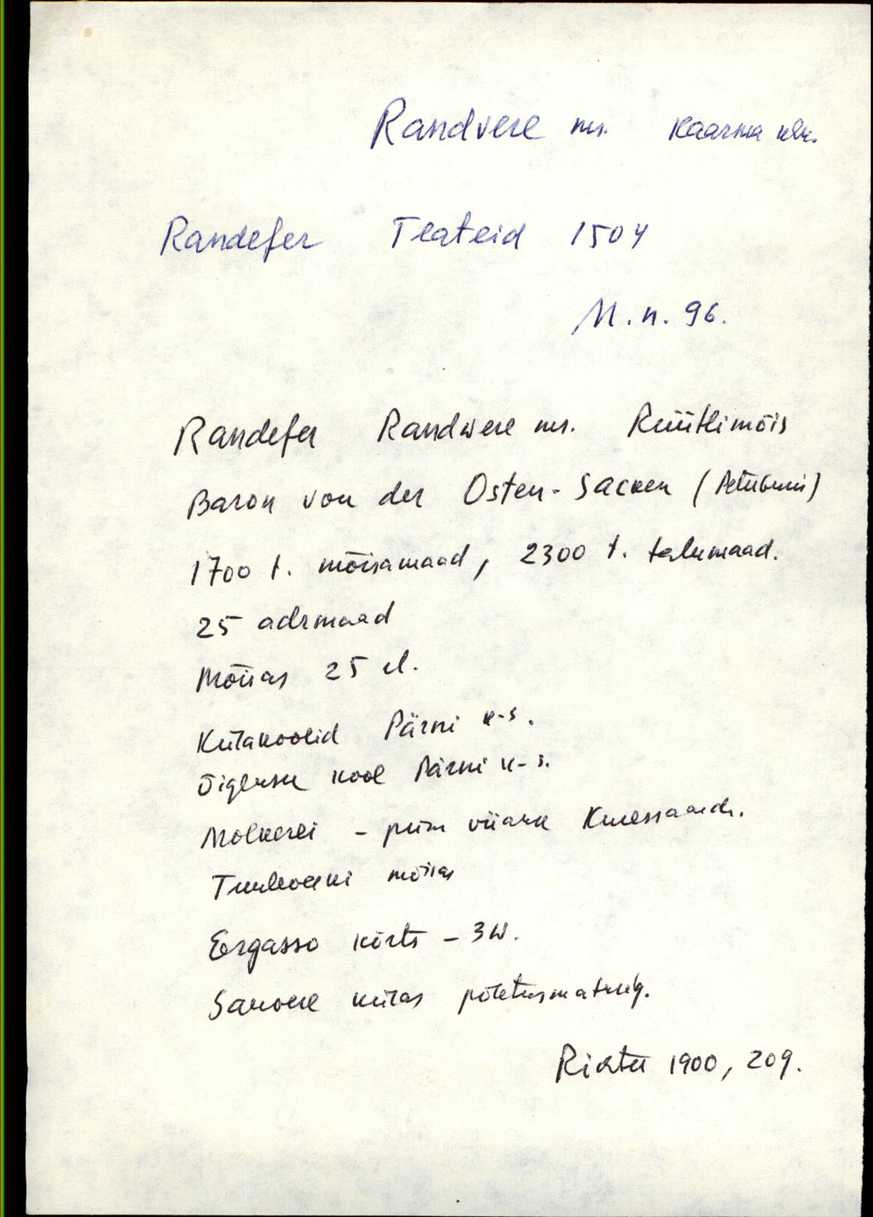 Randvere ms. Kaarma khk.
Randefer Teateid 1504
M.n. 96.
Randefer Randwere ms. Rüütlimõis
Baron von der Osten-Sacken (Peterburis)
1700 t. mõisamaad, 2300 t. talumaad.
25 adrmaad
Mõisas 25 el.
Külakoolid Pärni k-s.
Õigeusu kool Pärni k-s.
Molkerei - piim viiakse Kuressaarde.
mõisas
Ergasso kõrts - 3 w.
Sauvere külas põletusmatused.
Richter 1900, 209.